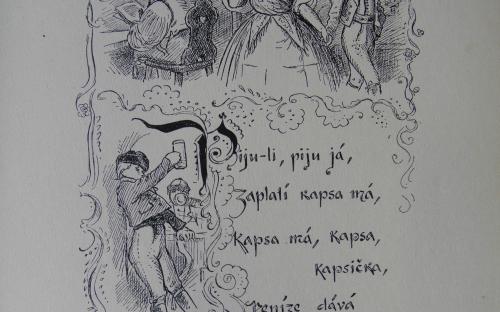 Piju-li, piju já,
zaplatí kapsa má,
kapsa má, kapsa,
kapsička,
peníze dává